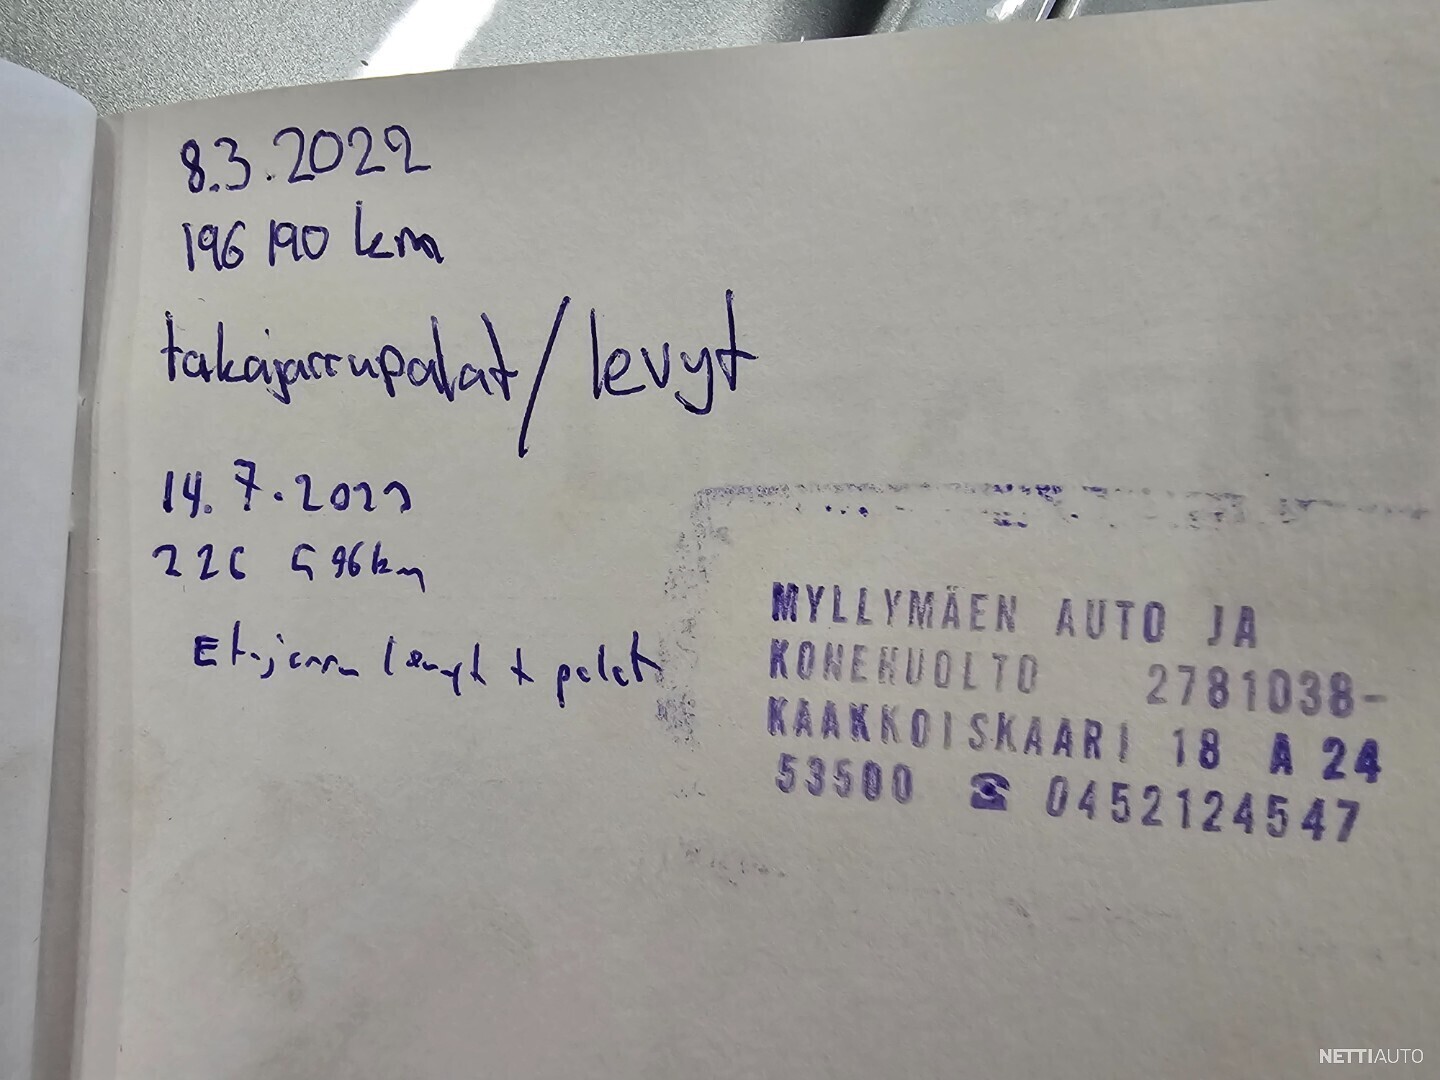 8.3.2022
196 190 km
takajarrupalat/levyt
14.7.2023
226 696km
Etujarru levyt + palat
MYLLYMÄEN AUTO JA
KONEHUOLTO 2781038-
KAAKKOISKAARI 18 A 24
53500 ☎ 0452124547
NETTIAUTO